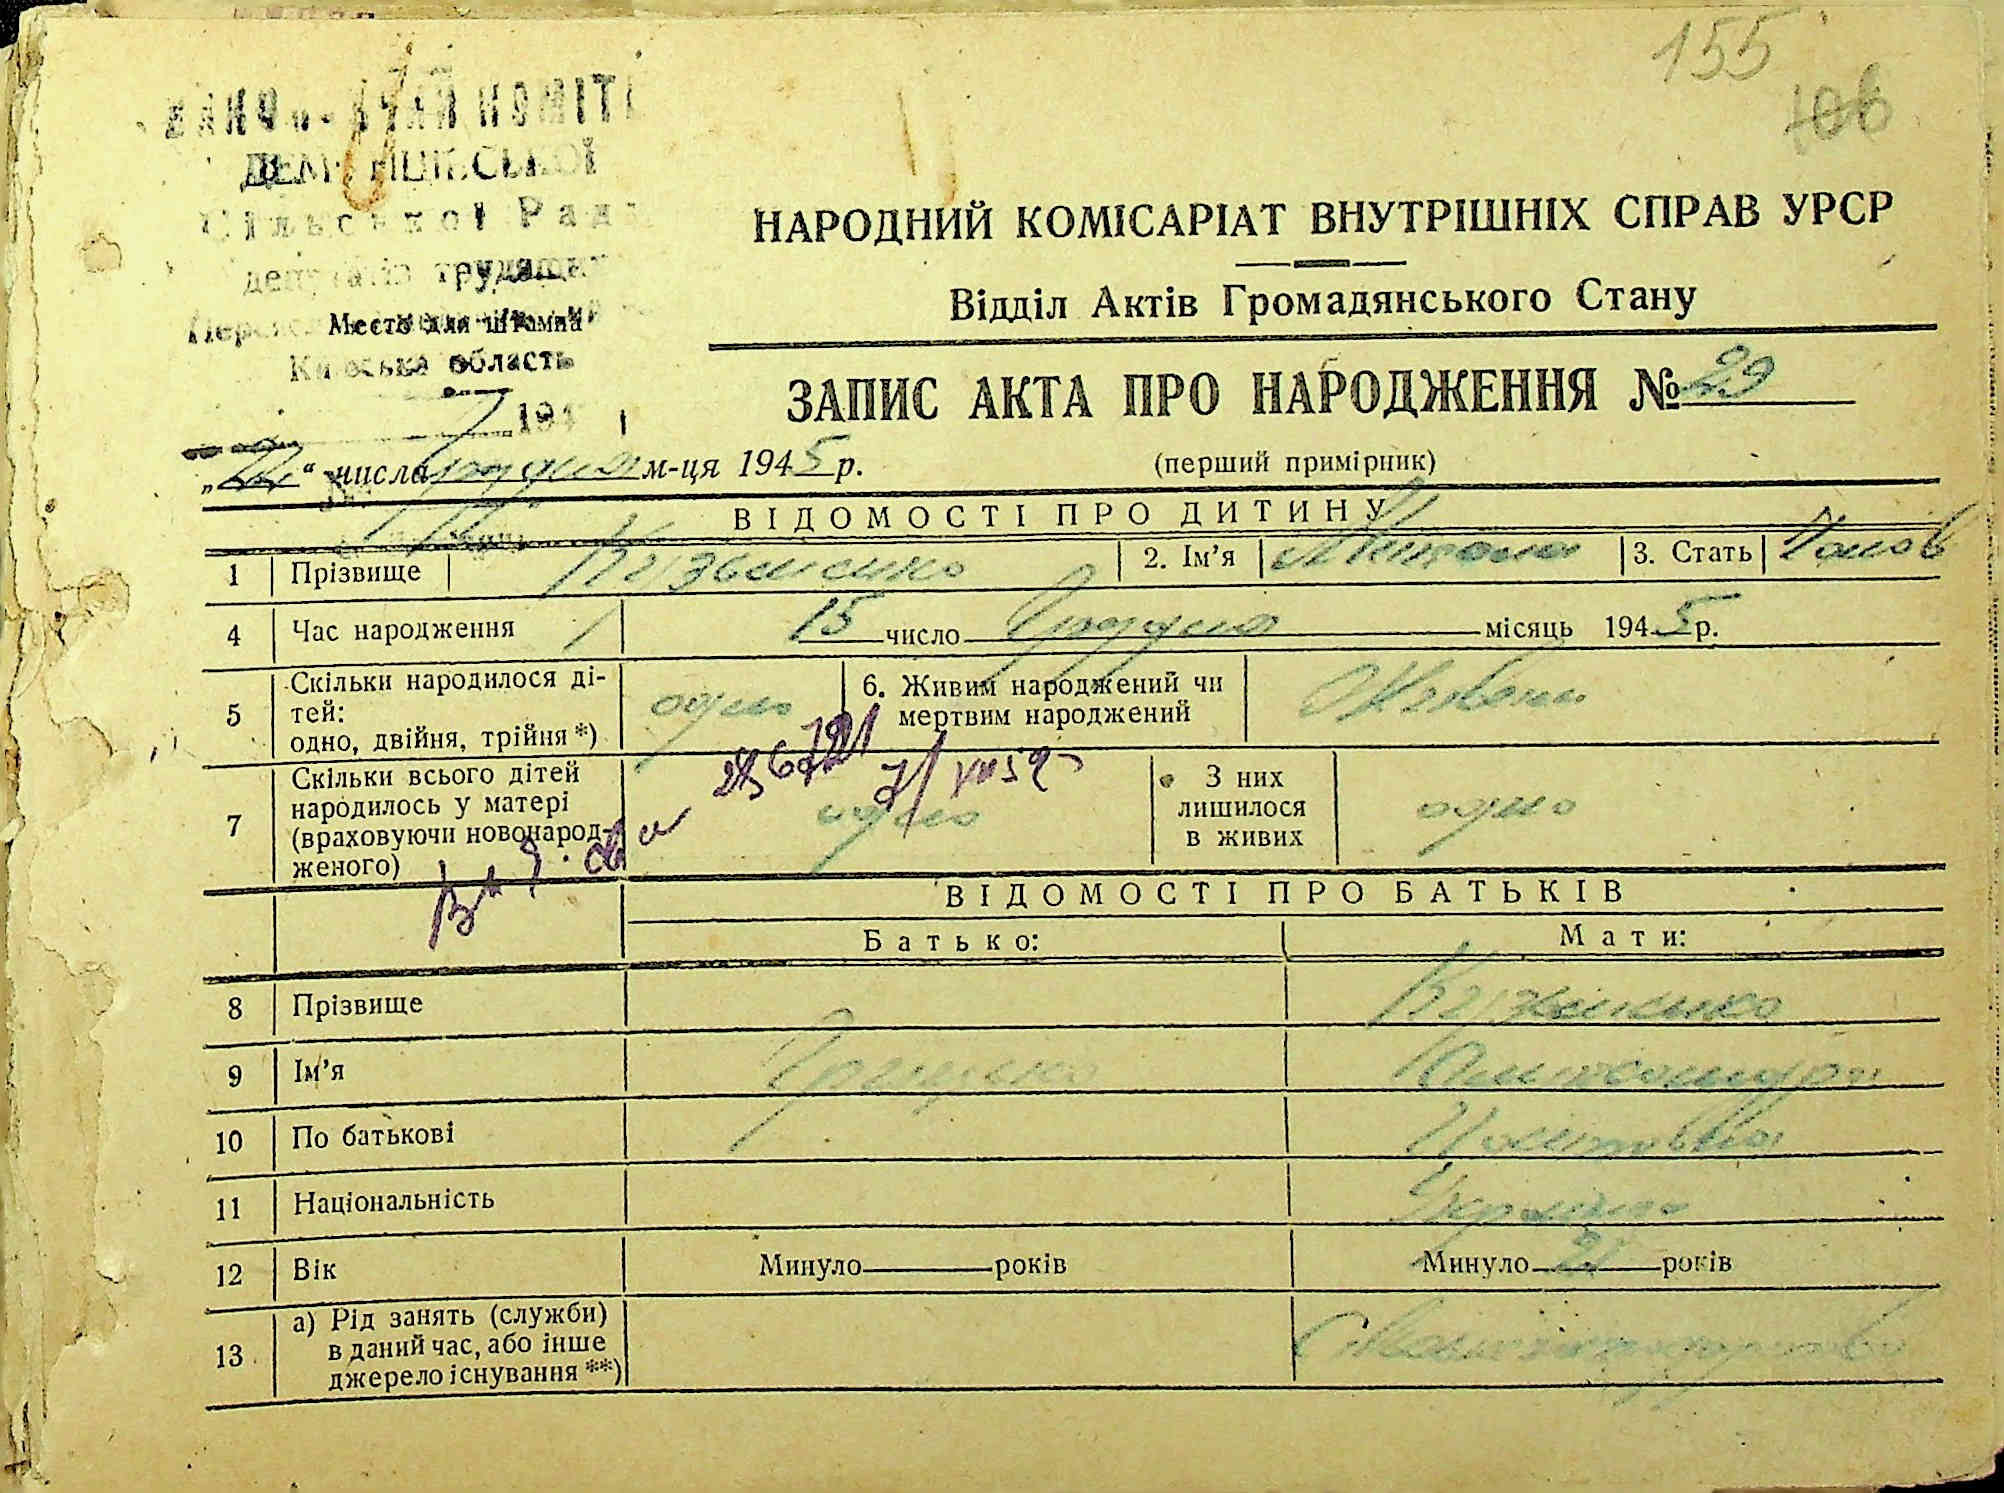 155
106
ДЕМ НЦІВСЬКОЇ
Сільської Рад
депутатів трудящих
Место для штампа
Київська область
194
НАРОДНИЙ КОМІСАРІАТ ВНУТРІШНІХ СПРАВ УРСР
Відділ Актів Громадянського Стану
ЗАПИС АКТА ПРО НАРОДЖЕННЯ № 29
„22“ числа грудня м-ця 1945 р.
(перший примірник)
ВІДОМОСТІ ПРО ДИТИНУ
1 Прізвище Кузьменко 2. Ім’я Микола 3. Стать Чолов
4 Час народження 15 число Грудня місяць 1945 р.
5 Скільки народилося ді-
тей:
одно, двійня, трійня *) одно 6. Живим народжений чи
мертвим народжений Живим
7 Скільки всього дітей
народилось у матері
(враховуючи новонарод-
женого) одно З них
лишилося
в живих одно
ВІДОМОСТІ ПРО БАТЬКІВ
Батько: Мати:
8 Прізвище Кузьменко
9 Ім’я Грицько Олександра
10 По батькові
11 Національність Українка
12 Вік Минуло років Минуло 21 років
13 а) Рід занять (служби)
в даний час, або інше
джерело існування **)